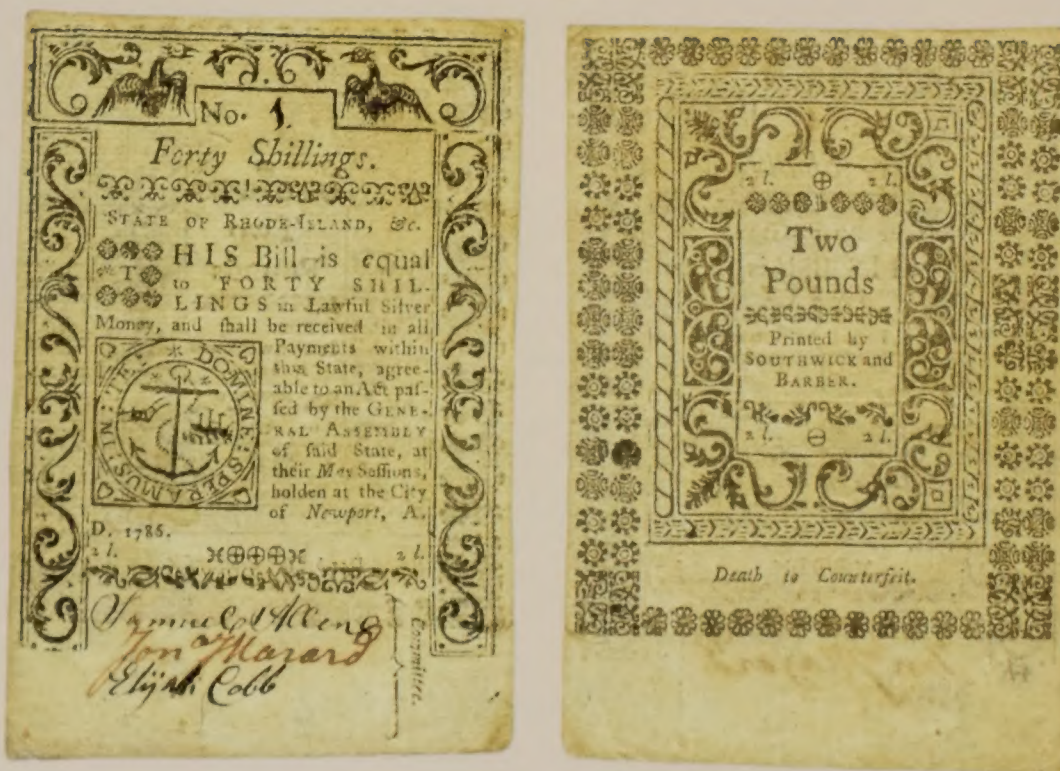 No. 1
Forty Shillings.
STATE OF RHODE-ISLAND, &c.
THIS Bill is equal
to FORTY SHIL-
LINGS in Lawful Silver
Money, and ſhall be received in all
Payments within
this State, agree-
able to an Act paſ-
ſed by the GENE-
RAL ASSEMBLY
of ſaid State, at
their May Seſſions,
holden at the City
of Newport, A.
D. 1786.
IN TE DOMINE SPERAMUS
2 l. 2 l.
Samuel Allen
Jona Hazard
Elijah Cobb
Committee.
2 l. 2 l.
Two
Pounds
Printed by
SOUTHWICK and
BARBER.
2 l. 2 l.
Death to Counterfeit.